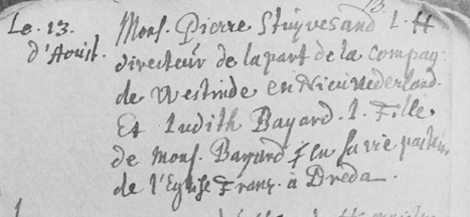 13
Le. 13. Mons. Pierre Stuyvesand I. H
d'Aoust. directeur de la part de la Compag:
de Westinde en Nieu Nederland.
Et Iudith Bayard. I. Fille
de Mons. Bayard en sa vie pasteur
de l'Eglise Franç. à Breda.